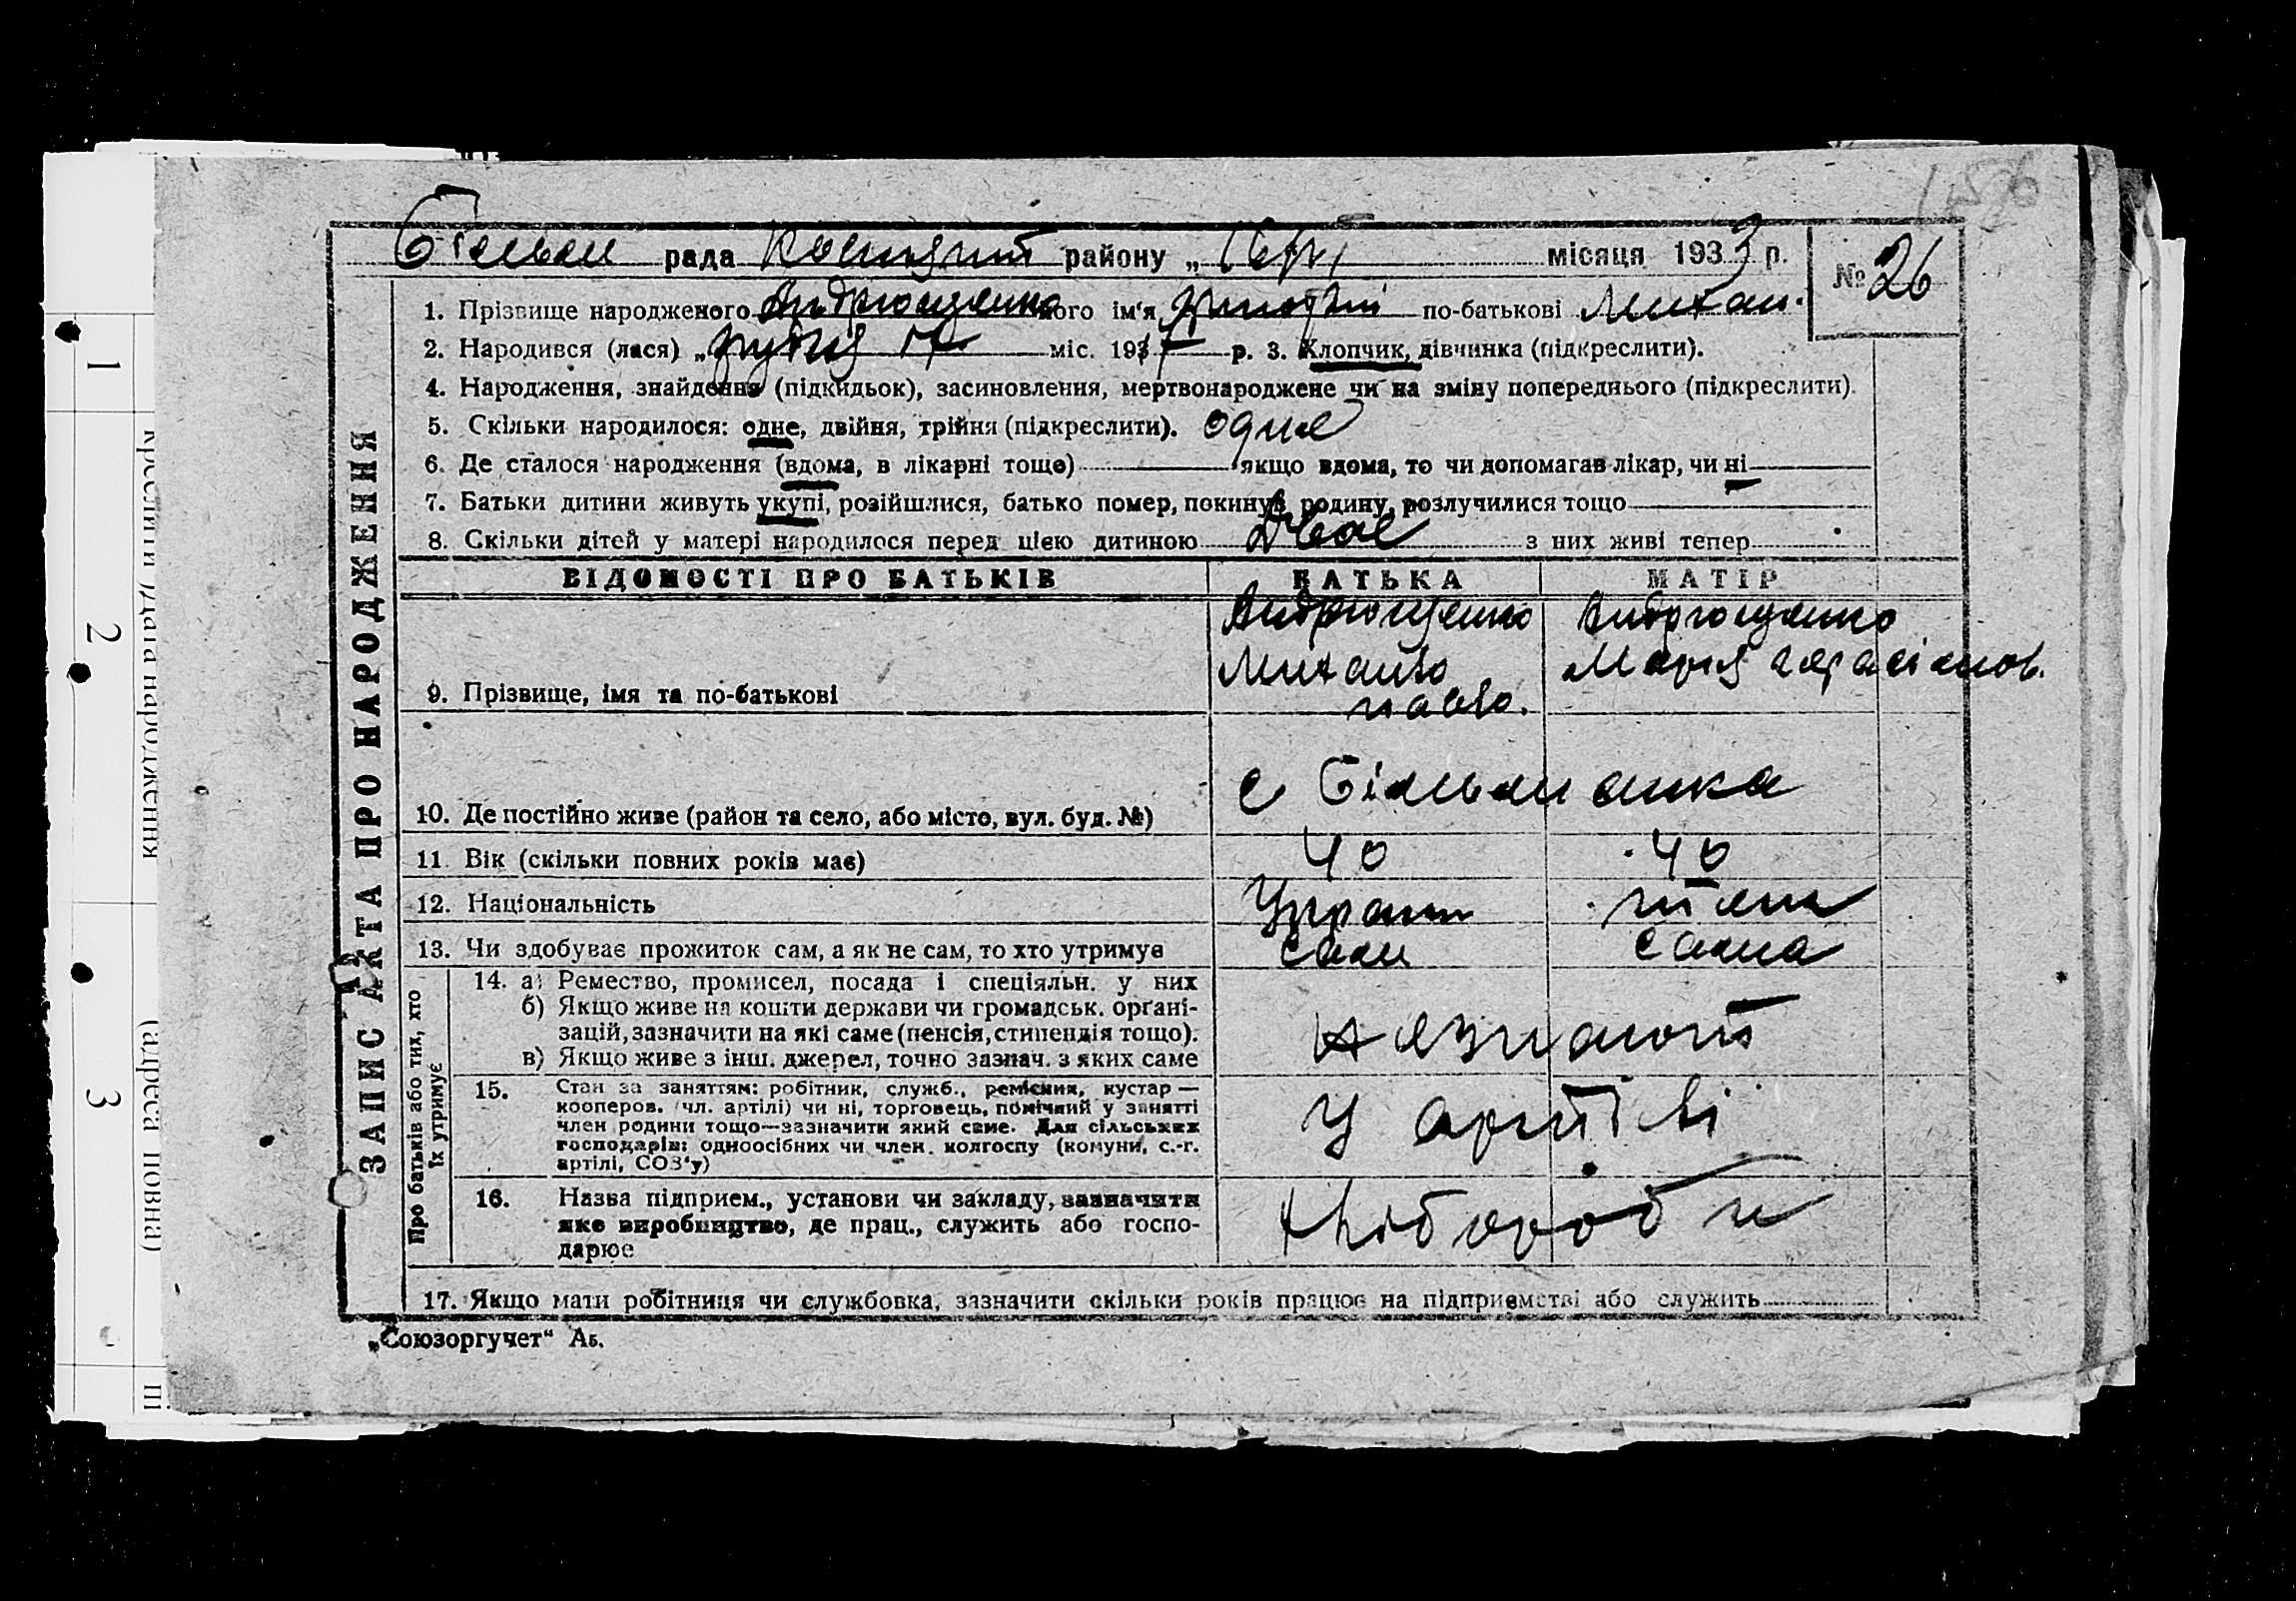 156
Більман рада район у „ місяця 1933 р. № 26
1. Прізвище народженого Андрющенко його ім'я Григорій по-батькові Михай.
2. Народився (лася) „грудня 17 міс. 1917 р. 3. Хлопчик, дівчинка (підкреслити).
4. Народження, знайдення (підкидьок), засиновлення, мертвонароджене чи на зміну попереднього (підкреслити).
5. Скільки народилося: одне, двійня, трійня (підкреслити). одне
6. Де сталося народження (вдома, в лікарні тощо) якщо вдома, то чи допомагав лікар, чи ні
7. Батьки дитини живуть укупі, розійшлися, батько помер, покинув родину, розлучилися тощо
8. Скільки дітей у матері народилося перед цією дитиною двоє з них живі тепер
ВІДОМОСТІ ПРО БАТЬКІВ БАТЬКА МАТІР
Андрющенко Андрющенко
Михайло Марія Герасімов.
9. Прізвище, імя та по-батькові павло.
с Більманка
10. Де постійно живе (район та село, або місто, вул. буд. №)
11. Вік (скільки повних років має) 40 40
12. Національність Україн
13. Чи здобуває прожиток сам, а як не сам, то хто утримує сам сама
14. а) Ремество, промисел, посада і спеціяльн. у них
б) Якщо живе на кошти держави чи громадськ. органі-
зацій, зазначити на які саме (пенсія, стипендія тощо).
в) Якщо живе з інш. джерел, точно зазнач. з яких саме
15. Стан за заняттям: робітник, служб., ремісник, кустар —
кооперов. (чл. артілі) чи ні, торговець, помічний у занятті
член родини тощо—зазначити який саме. Для сільських
господарів: одноосібних чи член. колгоспу (комуни, с.-г.
артілі, СОЗ'у)
у артілі
16. Назва підприєм., установи чи закладу, зазначити
яке виробництво, де прац., служить або госпо-
дарює
хлібороби
17. Якщо мати робітниця чи службовка, зазначити скільки років працює на підприємстві або служить
„Союзоргучет" Аб.
ЗАПИС АКТА ПРО НАРОДЖЕННЯ
Про батьків або тих, хто
їх утримує
1
2
3
(дата народження
(адреса повна)